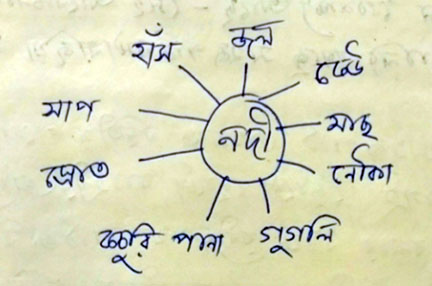 হাঁস
জল
ঢেউ
সাপ
মাছ
নদী
স্রোত
নৌকা
কচুরি পানা
গুগলি